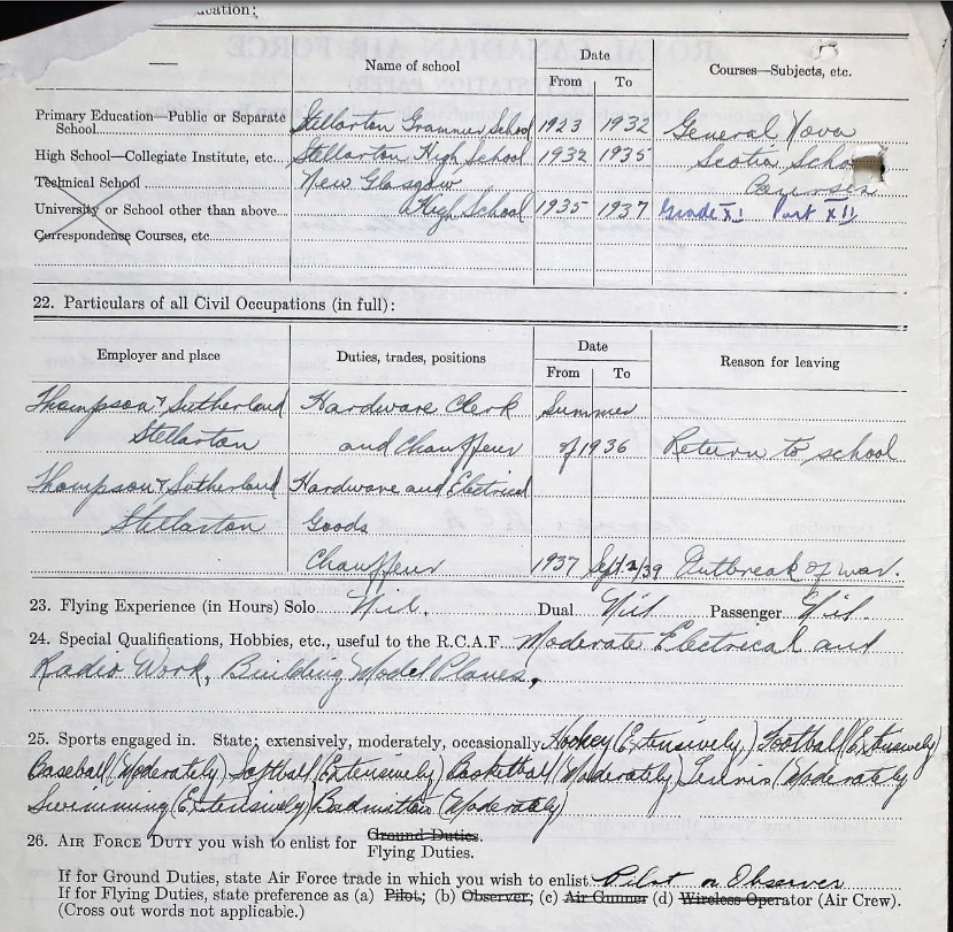 ucation:
Name of school Date Courses—Subjects, etc.
From To
Primary Education—Public or Separate School Stellarton Grammer School 1923 1932 General Nova
High School—Collegiate Institute, etc. Stellarton High School 1932 1935 Scotia Scho
Technical School New Glasgow Courses
University or School other than above High School 1935 1937 Grade XI Part XII
Correspondence Courses, etc.
22. Particulars of all Civil Occupations (in full):
Employer and place Duties, trades, positions Date Reason for leaving
From To
Thompson & Sutherland Hardware Clerk Summer
Stellarton and Chauffeur of 1936 Return to school
Thompson & Sutherland Hardware and Electrical
Stellarton Goods
Chauffeur 1937 Sept. 2/39 Outbreak of war.
23. Flying Experience (in Hours) Solo Nil. Dual Nil Passenger Nil.
24. Special Qualifications, Hobbies, etc., useful to the R.C.A.F. Moderate Electrical and
Radio Work, Building Model Planes,
25. Sports engaged in. State; extensively, moderately, occasionally Hockey (Extensively) Football (Extensively)
Baseball (Moderately) Softball (Extensively) Basketball (Moderately) Tennis (Moderately
Swimming (Extensively) Badmitton (Moderately)
26. AIR FORCE DUTY you wish to enlist for Ground Duties.
Flying Duties.
If for Ground Duties, state Air Force trade in which you wish to enlist Pilot or Observer
If for Flying Duties, state preference as (a) Pilot; (b) Observer; (c) Air Gunner (d) Wireless Operator (Air Crew).
(Cross out words not applicable.)